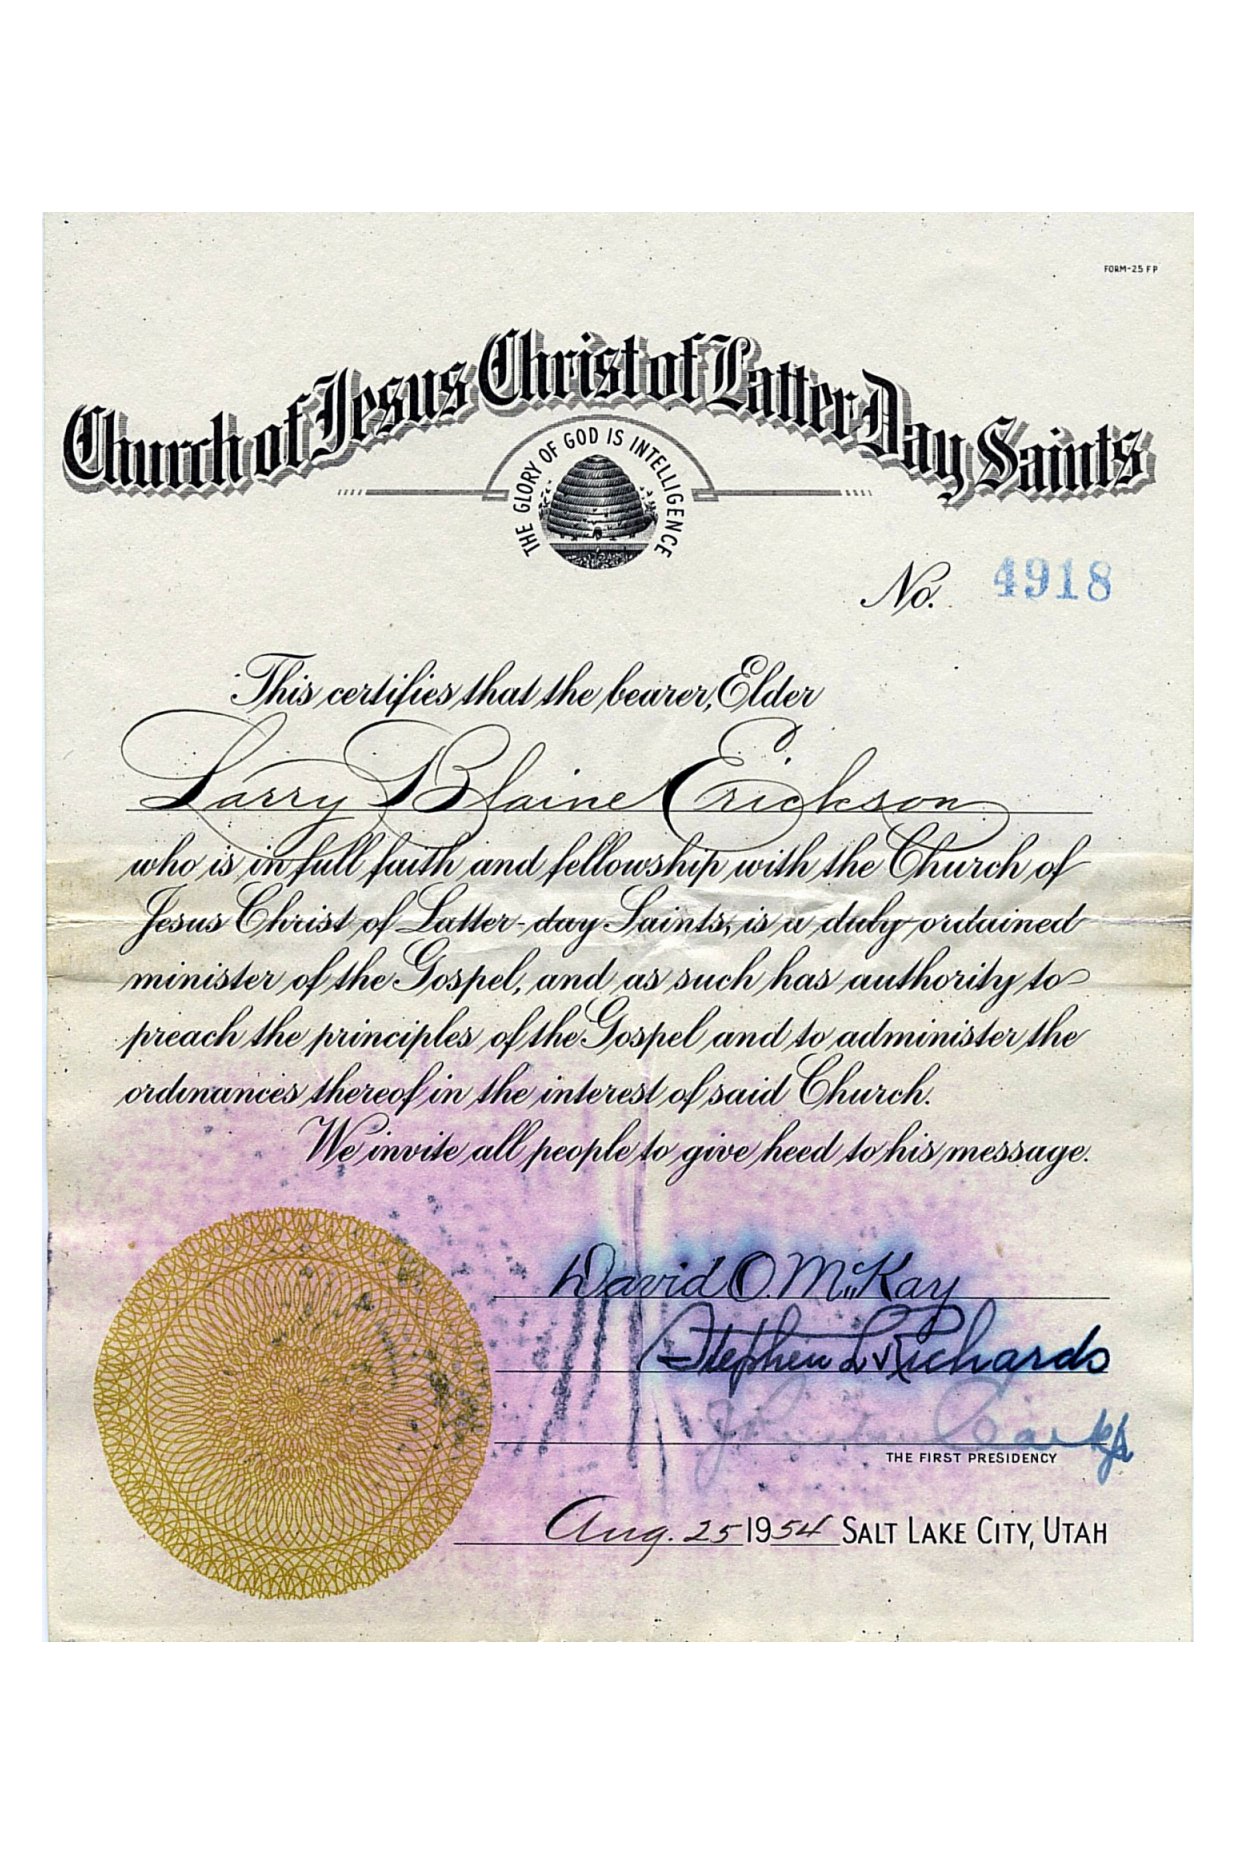 FORM-25 FP
Church of Jesus Christ of Latter Day Saints
THE GLORY OF GOD IS INTELLIGENCE
No. 4918
This certifies that the bearer, Elder
Larry Blaine Erickson
who is in full faith and fellowship with the Church of
Jesus Christ of Latter-day Saints, is a duly ordained
minister of the Gospel, and as such has authority to
preach the principles of the Gospel and to administer the
ordinances thereof in the interest of said Church.
We invite all people to give heed to his message.
David O. McKay
Stephen L Richards
J Clark Jr
THE FIRST PRESIDENCY
Aug. 25 1954 SALT LAKE CITY, UTAH